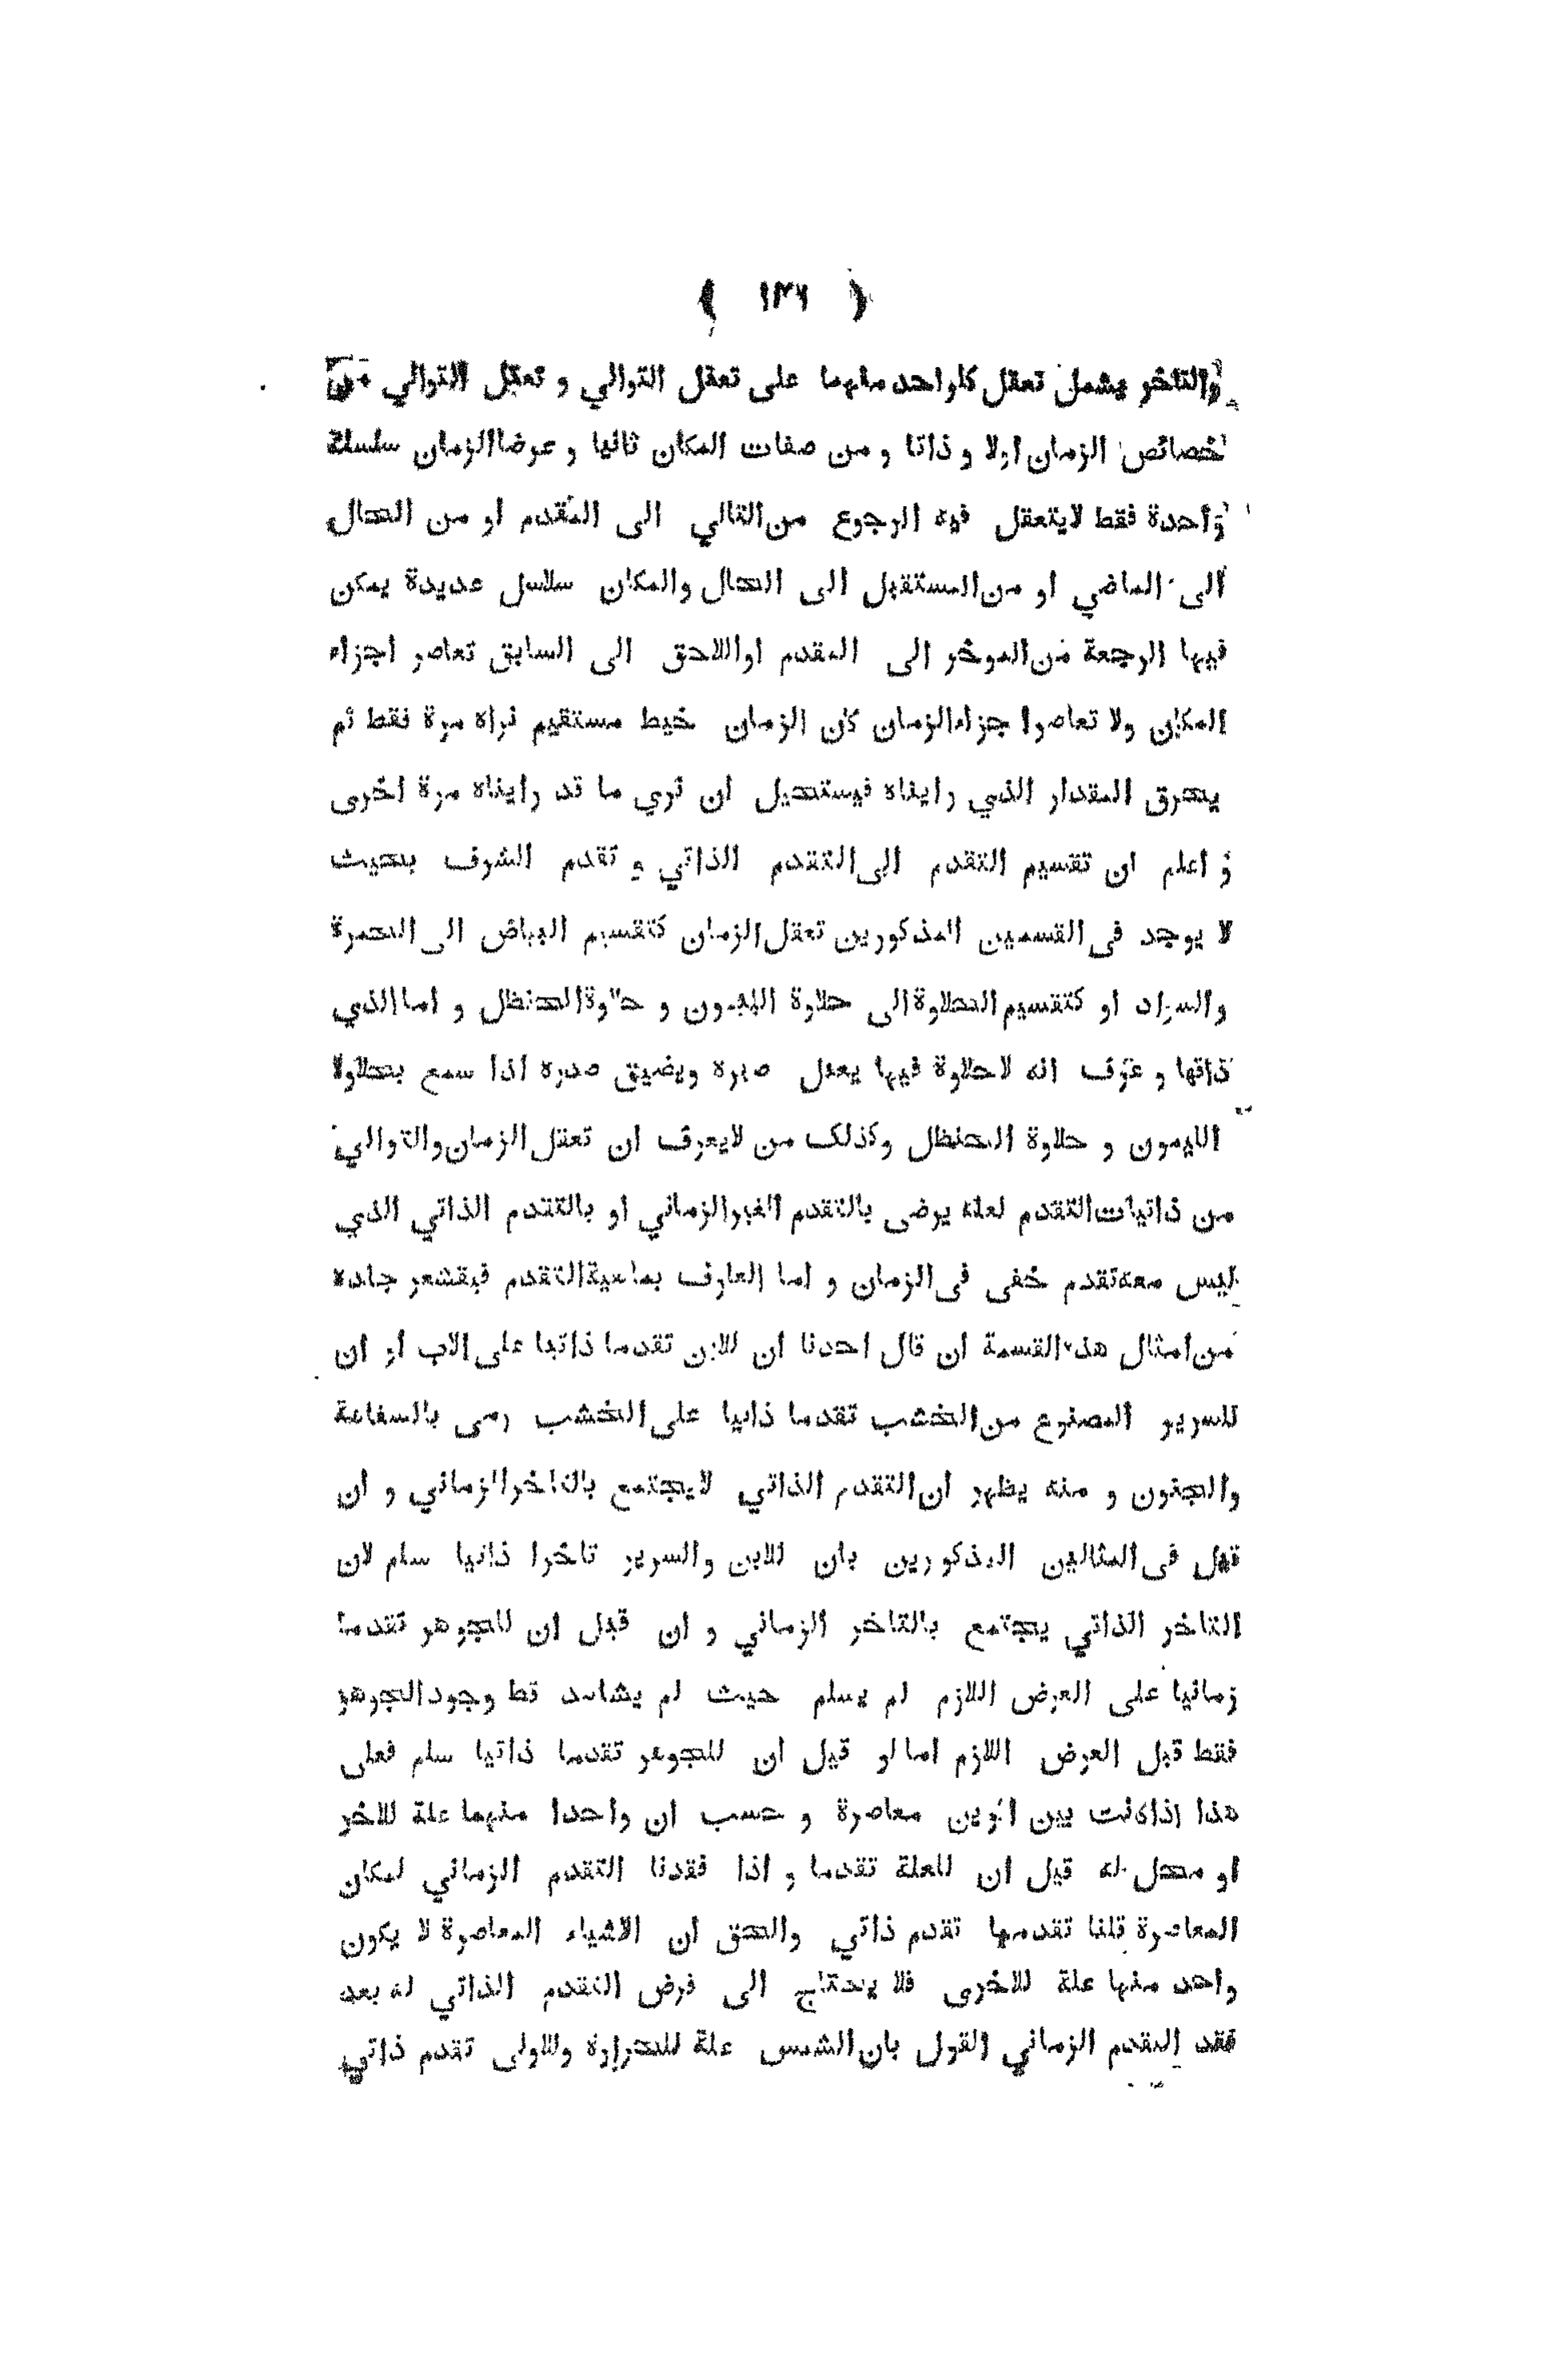 ( ١٣٦ )
والتاخر يشمل تعقل كلواحد منهما على تعقل التوالي و تعقل التوالي من
خصائص الزمان اولا و ذاتا و من صفات المكان ثانيا و عرضا الزمان سلسلة
واحدة فقط لايتعقل فيه الرجوع من التالي الى المقدم او من الحال
الى الماضي او من المستقبل الى الحال والمكان سلاسل عديدة يمكن
فيها الرجعة من الموخر الى المقدم اواللاحق الى السابق تعاصر اجزاء
المكان ولا تعاصر اجزاء الزمان كان الزمان خيط مستقيم نراه مرة فقط ثم
يحرق المقدار الذي رايناه فيستحيل ان نري ما قد رايناه مرة اخرى
و اعلم ان تقسيم التقدم الى التقدم الذاتي و تقدم الشرف بحيث
لا يوجد فى القسمين المذكورين تعقل الزمان كتقسيم البياض الى الحمرة
والسواد او كتقسيم الحلاوة الى حلاوة الليمون و حلاوة الحنظل و اما الذي
ذاقها و عرف انه لا حلاوة فيها يعل صبره ويضيق صدره اذا سمع بحلاولا
الليمون و حلاوة الحنظل وكذلك من لايعرف ان تعقل الزمان والتوالي
من ذاتيات التقدم لعله يرضى بالتقدم الغير الزماني او بالتقدم الذاتي الذي
ليس معه تقدم خفى فى الزمان و اما العارف بماهية التقدم فيقشعر جلده
من امثال هذه القسمة ان قال احدنا ان للابن تقدما ذاتيا على الاب او ان
للسرير المصنوع من الخشب تقدما ذاتيا على الخشب رمى بالسفاهة
والجنون و منه يظهر ان التقدم الذاتي لايجتمع بالتاخر الزماني و ان
قيل فى المثالين المذكورين بان للابن والسرير تاخرا ذاتيا سلم لان
التاخر الذاتي يجتمع بالتاخر الزماني و ان قيل ان للجوهر تقدما
زمانيا على العرض اللازم لم يسلم حيث لم يشاهد قط وجود الجوهر
فقط قبل العرض اللازم اما لو قيل ان للجوهر تقدما ذاتيا سلم فعلى
هذا اذا كانت بين امرين معاصرة و حسب ان واحدا منهما علة للاخر
او محل له قيل ان للعلة تقدما و اذا فقدنا التقدم الزماني لمكان
المعاصرة قلنا تقدمها تقدم ذاتي والحق ان الاشياء المعاصرة لا يكون
واحد منها علة للاخرى فلا يحتاج الى فرض التقدم الذاتي له بعد
فقد التقدم الزماني القول بان الشمس علة للحرارة وللاولى تقدم ذاتي